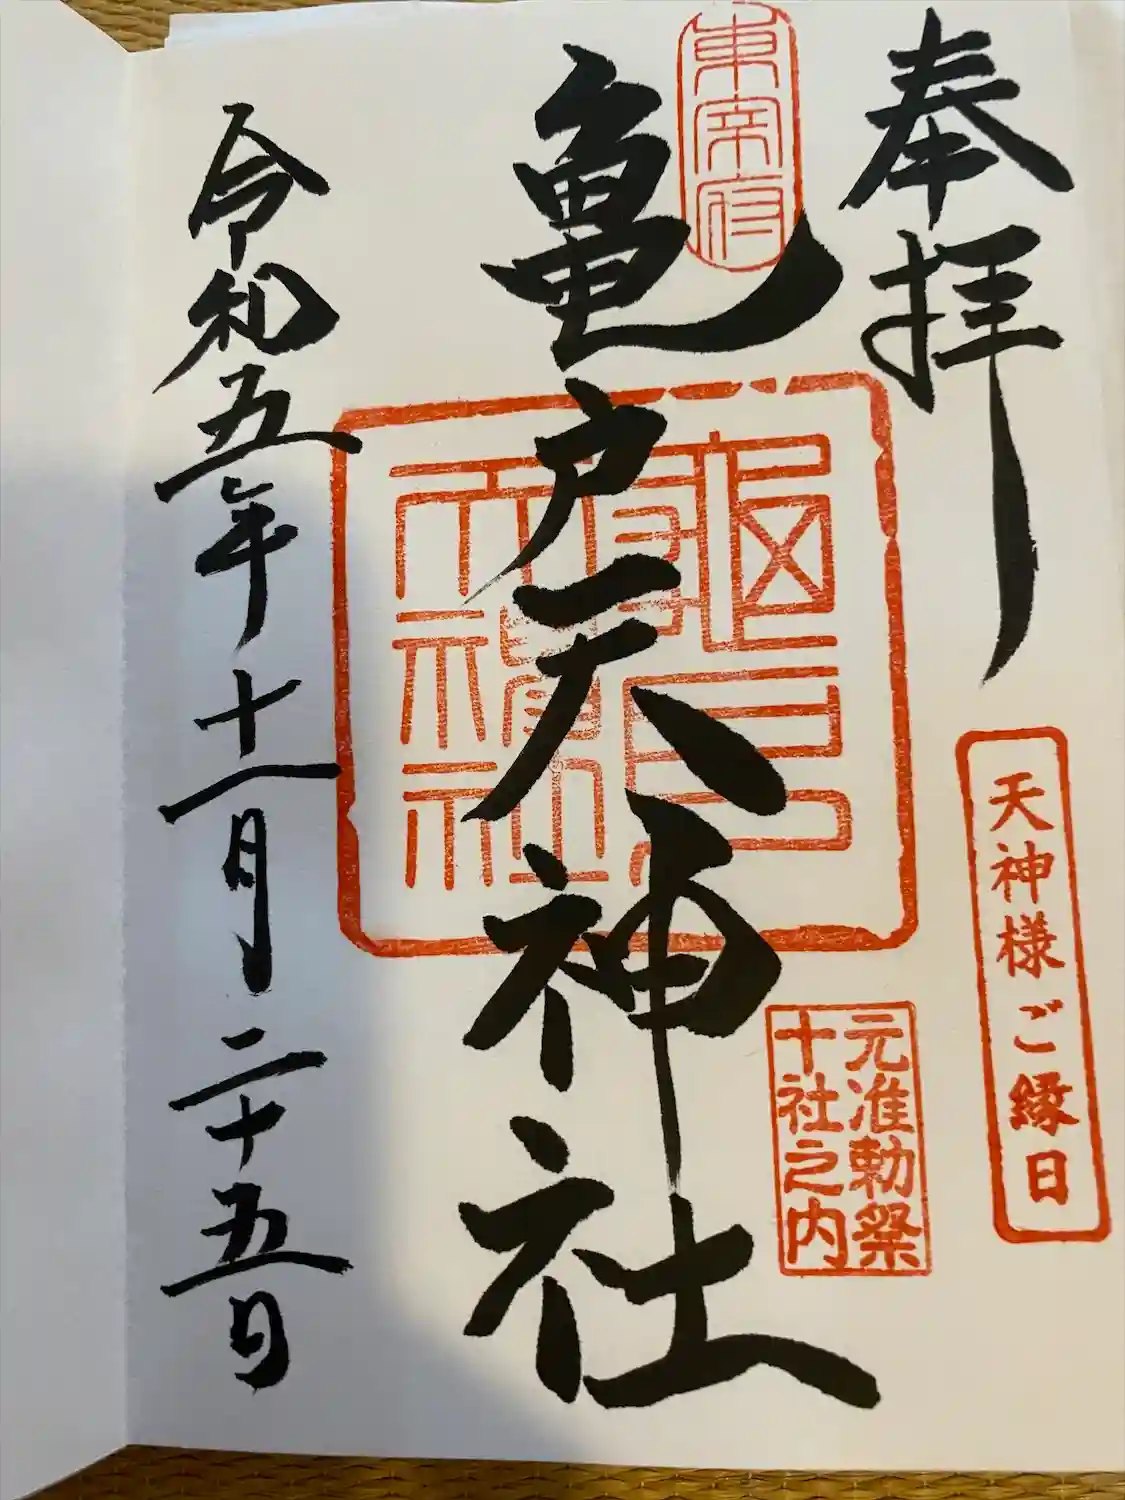 奉拝
天神様ご縁日
元准勅祭
十社之内
東宰府
亀戸天神社
令和五年十一月二十五日